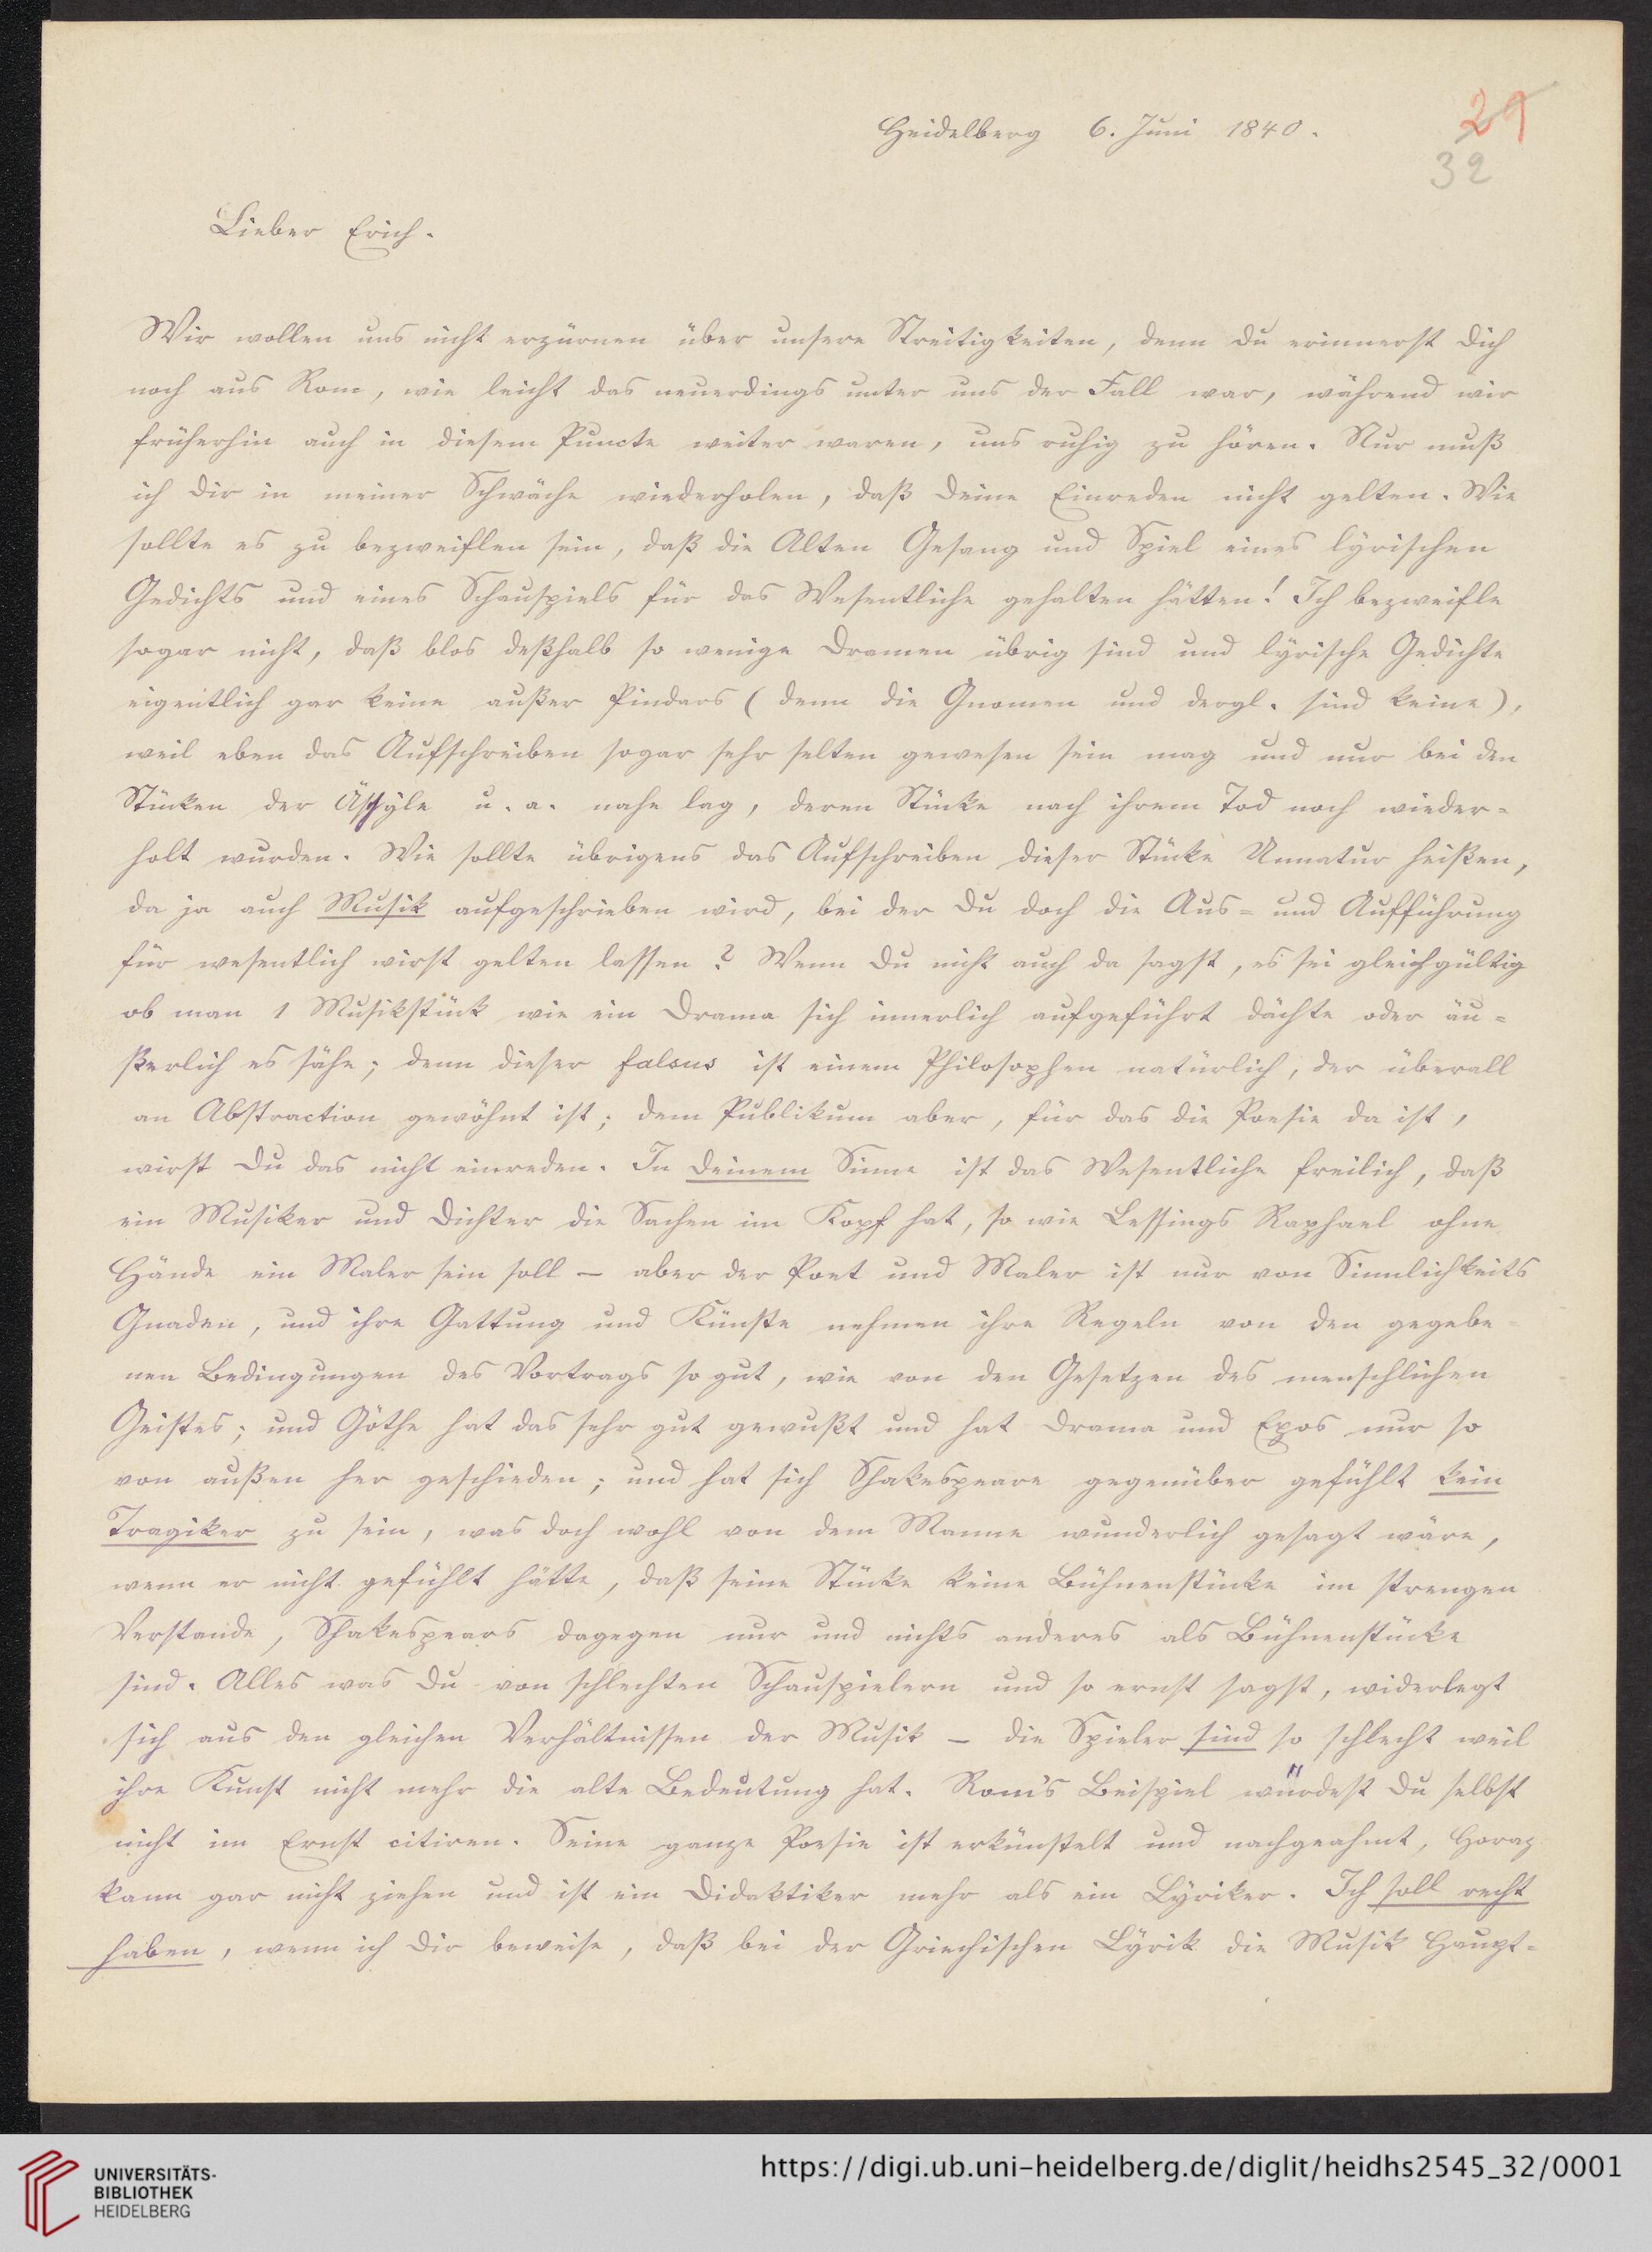 Heidelberg 6. Juni 1840.
29
32
Lieber Erich.
Wir wollen uns nicht erzürnen über unsere Streitigkeiten, denn Du erinnerst Dich
noch aus Rom, wie leicht das neuerdings unter uns der Fall war, während wir
früherhin auch in diesem Puncte weiter waren, uns ruhig zu hören. Nur muß
ich Dir in meiner Schwäche wiederholen, daß Deine Einreden nicht gelten. Wie
sollte es zu bezweiflen sein, daß die Alten Gesang und Spiel eines lyrischen
Gedichts und eines Schauspiels für das Wesentliche gehalten hätten! Ich bezweifle
sogar nicht, daß blos deßhalb so wenige Dramen übrig sind und lyrische Gedichte
eigentlich gar keine außer Pindars (denn die Gnomen und dergl. sind keine),
weil eben das Aufschreiben sogar sehr selten gewesen sein mag und nur bei den
Stücken der Äschyle u. a. nahe lag, deren Stücke nach ihrem Tod noch wieder-
holt wurden. Wie sollte übrigens das Aufschreiben dieser Stücke Unnatur heißen,
da ja auch Musik aufgeschrieben wird, bei der Du doch die Aus- und Aufführung
für wesentlich wirst gelten lassen? Wenn Du nicht auch da sagst, es sei gleichgültig
ob man 1 Musikstück wie ein Drama sich innerlich aufgeführt dächte oder äu-
ßerlich es sähe; denn dieser falsus ist einem Philosophen natürlich, der überall
an Abstraction gewöhnt ist; dem Publikum aber, für das die Poesie da ist,
wirst Du das nicht einreden. In Deinem Sinne ist das Wesentliche freilich, daß
ein Musiker und Dichter die Sachen im Kopf hat, so wie Lessings Raphael ohne
Hände ein Maler sein soll – aber der Poet und Maler ist nur von Sinnlichkeits
Gnaden, und ihre Gattung und Künste nehmen ihre Regeln von den gegebe-
nen Bedingungen des Vortrags so gut, wie von den Gesetzen des menschlichen
Geistes; und Göthe hat das sehr gut gewußt und hat Drama und Epos nur so
von außen her geschieden; und hat sich Shakespeare gegenüber gefühlt kein
Tragiker zu sein, was doch wohl von dem Manne wunderlich gesagt wäre,
wenn er nicht gefühlt hätte, daß seine Stücke keine Bühnenstücke im strengen
Verstande, Shakespears dagegen nur und nichts anderes als Bühnenstücke
sind. Alles was Du von schlechten Schauspielern und so ernst sagst, widerlegt
sich aus den gleichen Verhältnissen der Musik – die Spieler sind so schlecht weil
ihre Kunst nicht mehr die alte Bedeutung hat. Rom's Beispiel würdest Du selbst
nicht im Ernst citiren. Seine ganze Poesie ist erkünstelt und nachgeahmt, Horaz
kann gar nicht ziehen und ist ein Didaktiker mehr als ein Lyriker. Ich soll recht
haben, wenn ich Dir beweise, daß bei der Griechischen Lyrik die Musik Haupt-
UNIVERSITÄTS-
BIBLIOTHEK
HEIDELBERG
https://digi.ub.uni-heidelberg.de/diglit/heidhs2545_32/0001